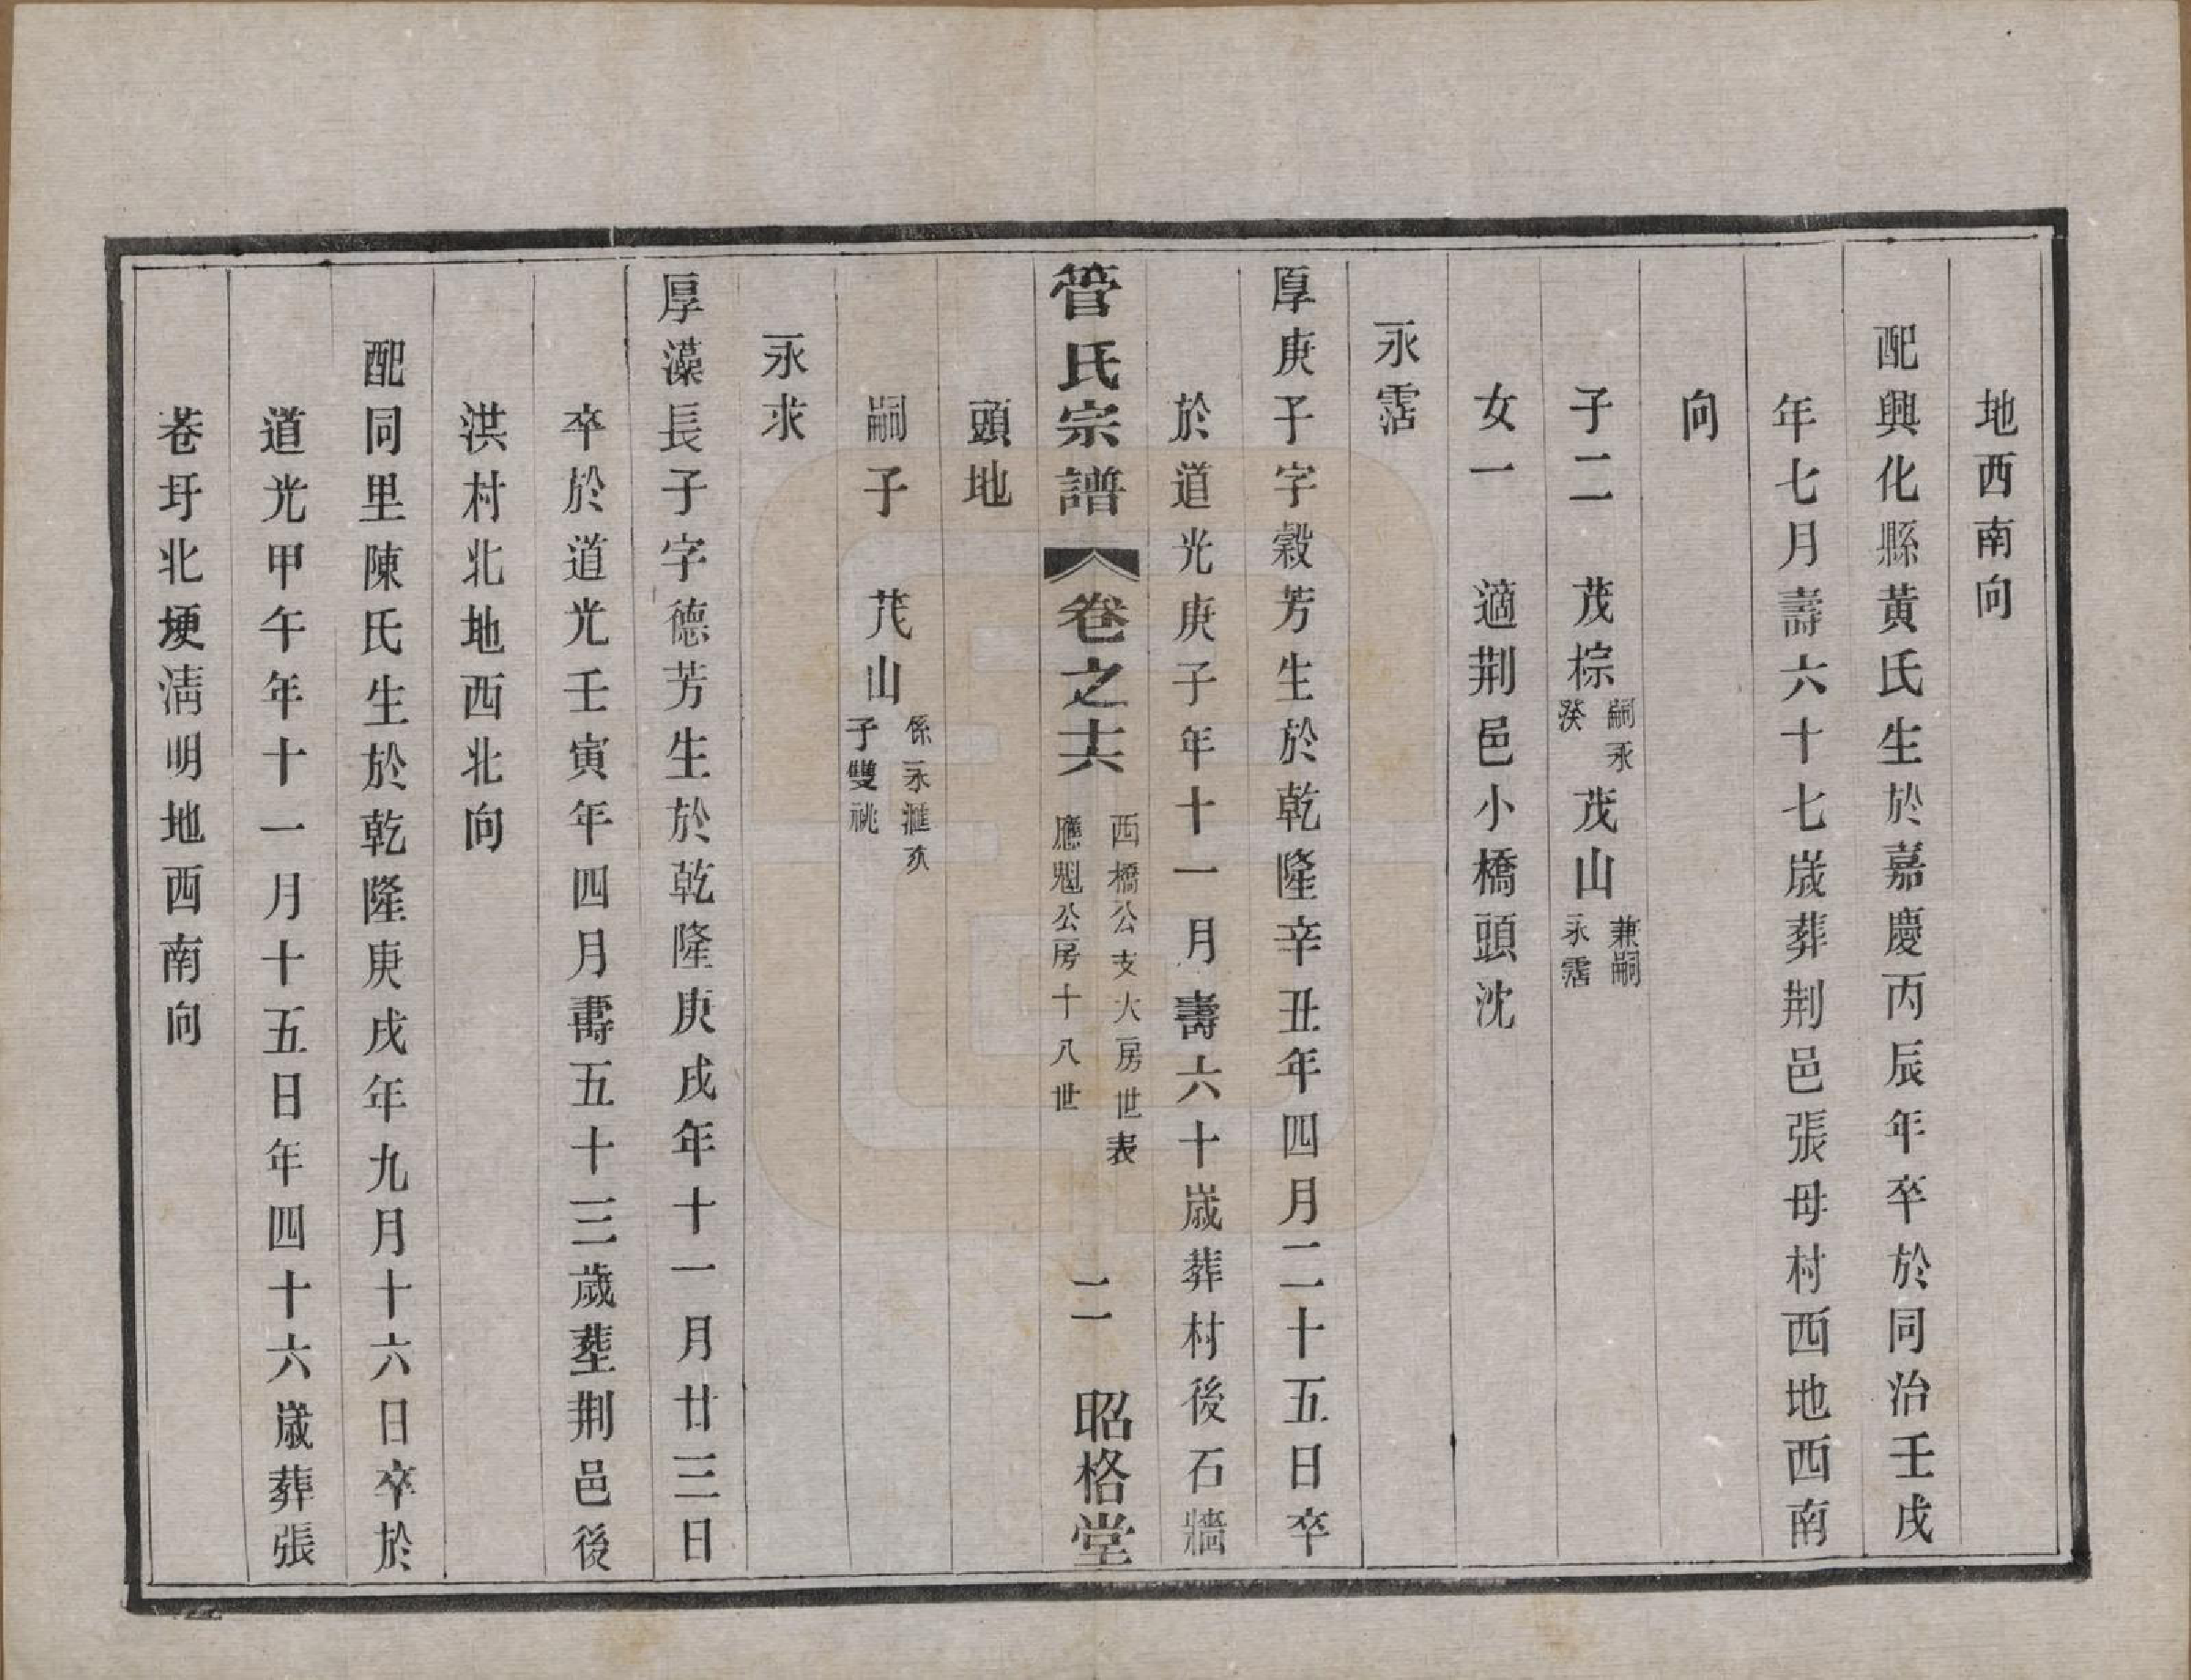 地西南向
配興化縣黃氏生於嘉慶丙辰年卒於同治壬戌
年七月壽六十七歲葬荆邑張母村西地西南
向
子二　茂棕嗣永癸　茂山兼嗣永霑
女一　適荆邑小橋頭沈
永霑
厚庚子字穀芳生於乾隆辛丑年四月二十五日卒
於道光庚子年十一月壽六十歲葬村後石牆
管氏宗譜　卷之十六　西橋公支大房世表　應魁公房十八世　二　昭格堂
頭地
嗣子　茂山係永滙次子雙祧
永求
厚藻長子字德芳生於乾隆庚戌年十一月廿三日
卒於道光壬寅年四月壽五十三歲塟荆邑後
洪村北地西北向
配同里陳氏生於乾隆庚戌年九月十六日卒於
道光甲午年十一月十五日年四十六歲葬張
巷圩北埂淸明地西南向